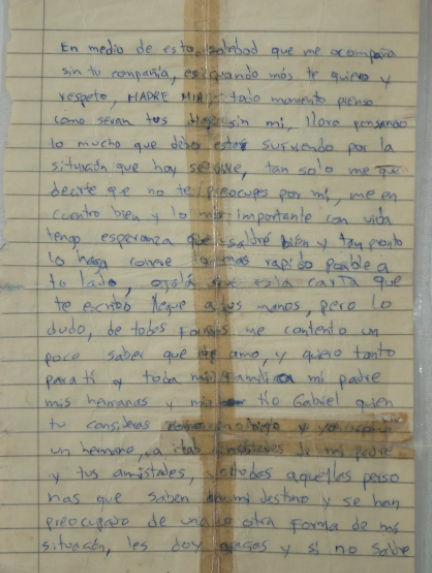 En medio de esta soledad que me acompaña
sin tu compañía, es cuando más te quiero y
respeto, MADRE MIA, todo momento pienso
como seran tus dias sin mi, lloro pensando
lo mucho que debes estar sufriendo por la
situación que hoy se vive, tan solo me
decirte que no te preocupes por mi, me en
cuentro bien y lo más importante con vida
tengo esperanza que saldré bien y tan pronto
lo haga correre lo mas rapido posible a
tu lado, ojalá que esta carta que
te escribó llegue a tus manos, pero lo
dudo, de todas formas me contento un
poco saber que te amo, y quiero tanto
para ti y toda mi familia mi padre
mis hermanas y mi tío Gabriel quien
tu consideras y yo
un hermano, a amistades de mi padre
y tus amistades, y todos aquellas perso
nas que saben mi destino y se han
preocupado de una u otra forma de mi
situación, les doy gracias y si no saldre